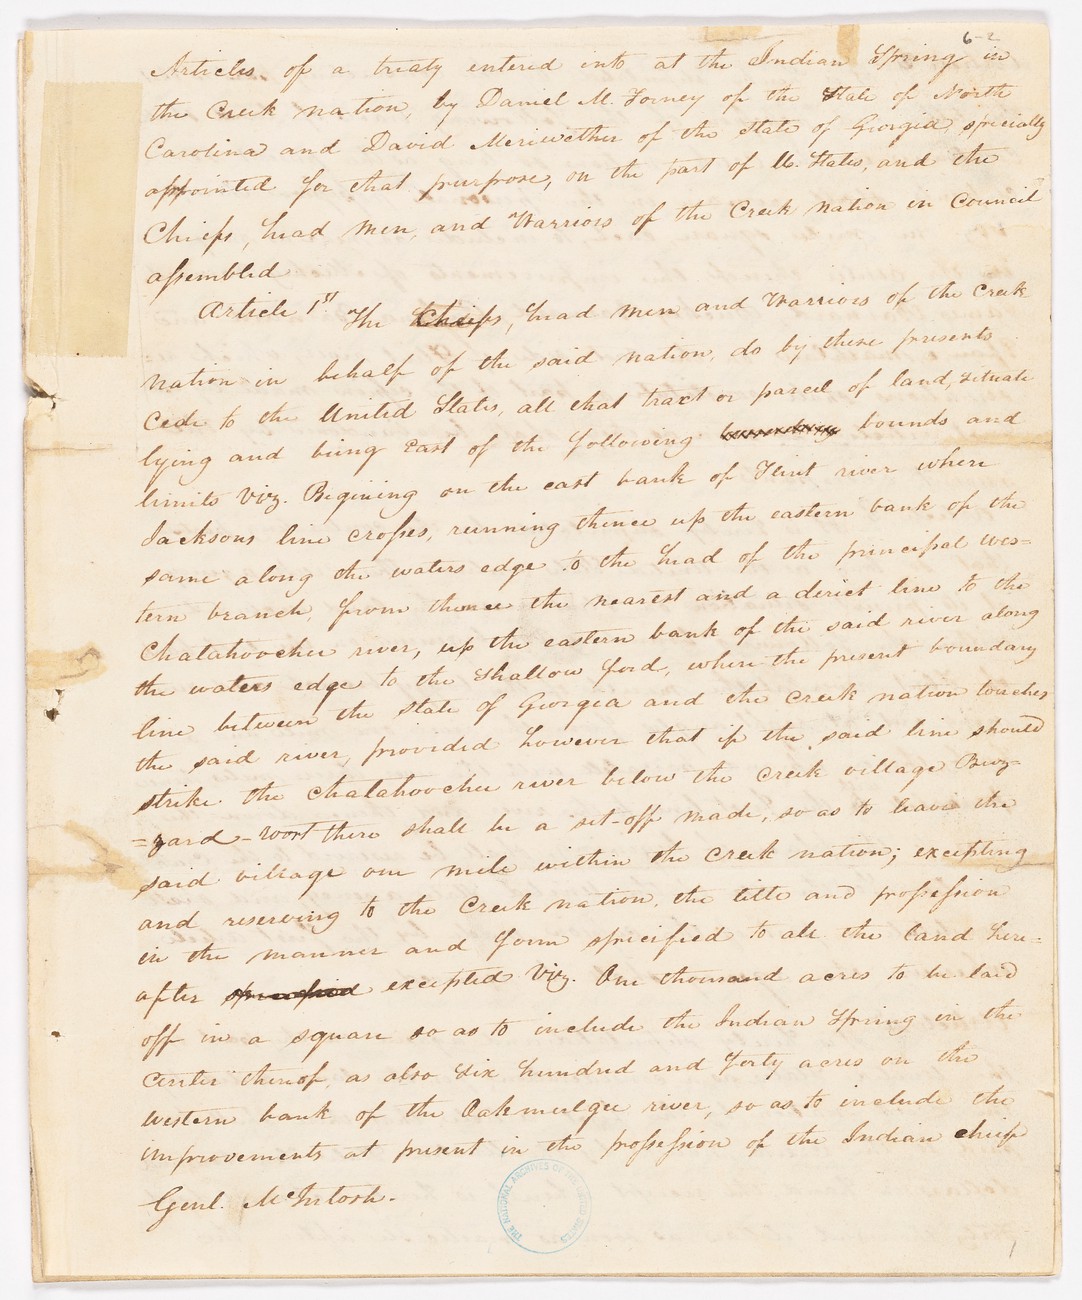 6-2
Articles of a treaty entered into at the Indian Spring in
the Creek nation, by Daniel M. Forney of the State of North
Carolina and David Meriwether of the State of Georgia, specially
appointed for that purpose, on the part of U. States, and the
Chiefs, head men, and Warriors of the Creek nation in Council
assembled
Article 1st. The Chiefs, head men and Warriors of the Creek
nation in behalf of the said nation, do by these presents
cede to the United States, all that tract or parcel of land, situate
lying and being East of the following bounds and
limits Viz. Begining on the east bank of Flint river where
Jacksons line crosses, running thence up the eastern bank of the
same along the waters edge to the head of the principal wes=
tern branch, from thence the nearest and a direct line to the
Chatahoochee river, up the eastern bank of the said river along
the waters edge to the Shallow ford, where the present boundary
line between the State of Georgia and the Creek nation touches
the said river, provided however that if the said line should
strike the Chatahoochee river below the Creek village Buz=
=zard-Roost there shall be a set-off made, so as to leave the
said village one mile within the Creek nation; excepting
and reserving to the Creek nation, the title and possession
in the manner and form specified to all the land here=
after excepted Viz. One thousand acres to be laid
off in a square so as to include the Indian Spring in the
center thereof, as also Six hundred and forty acres on the
western bank of the Oakmulgee river, so as to include the
improvements at present in the possession of the Indian chief
Genl. McIntosh.
THE NATIONAL ARCHIVES OF THE UNITED STATES
1